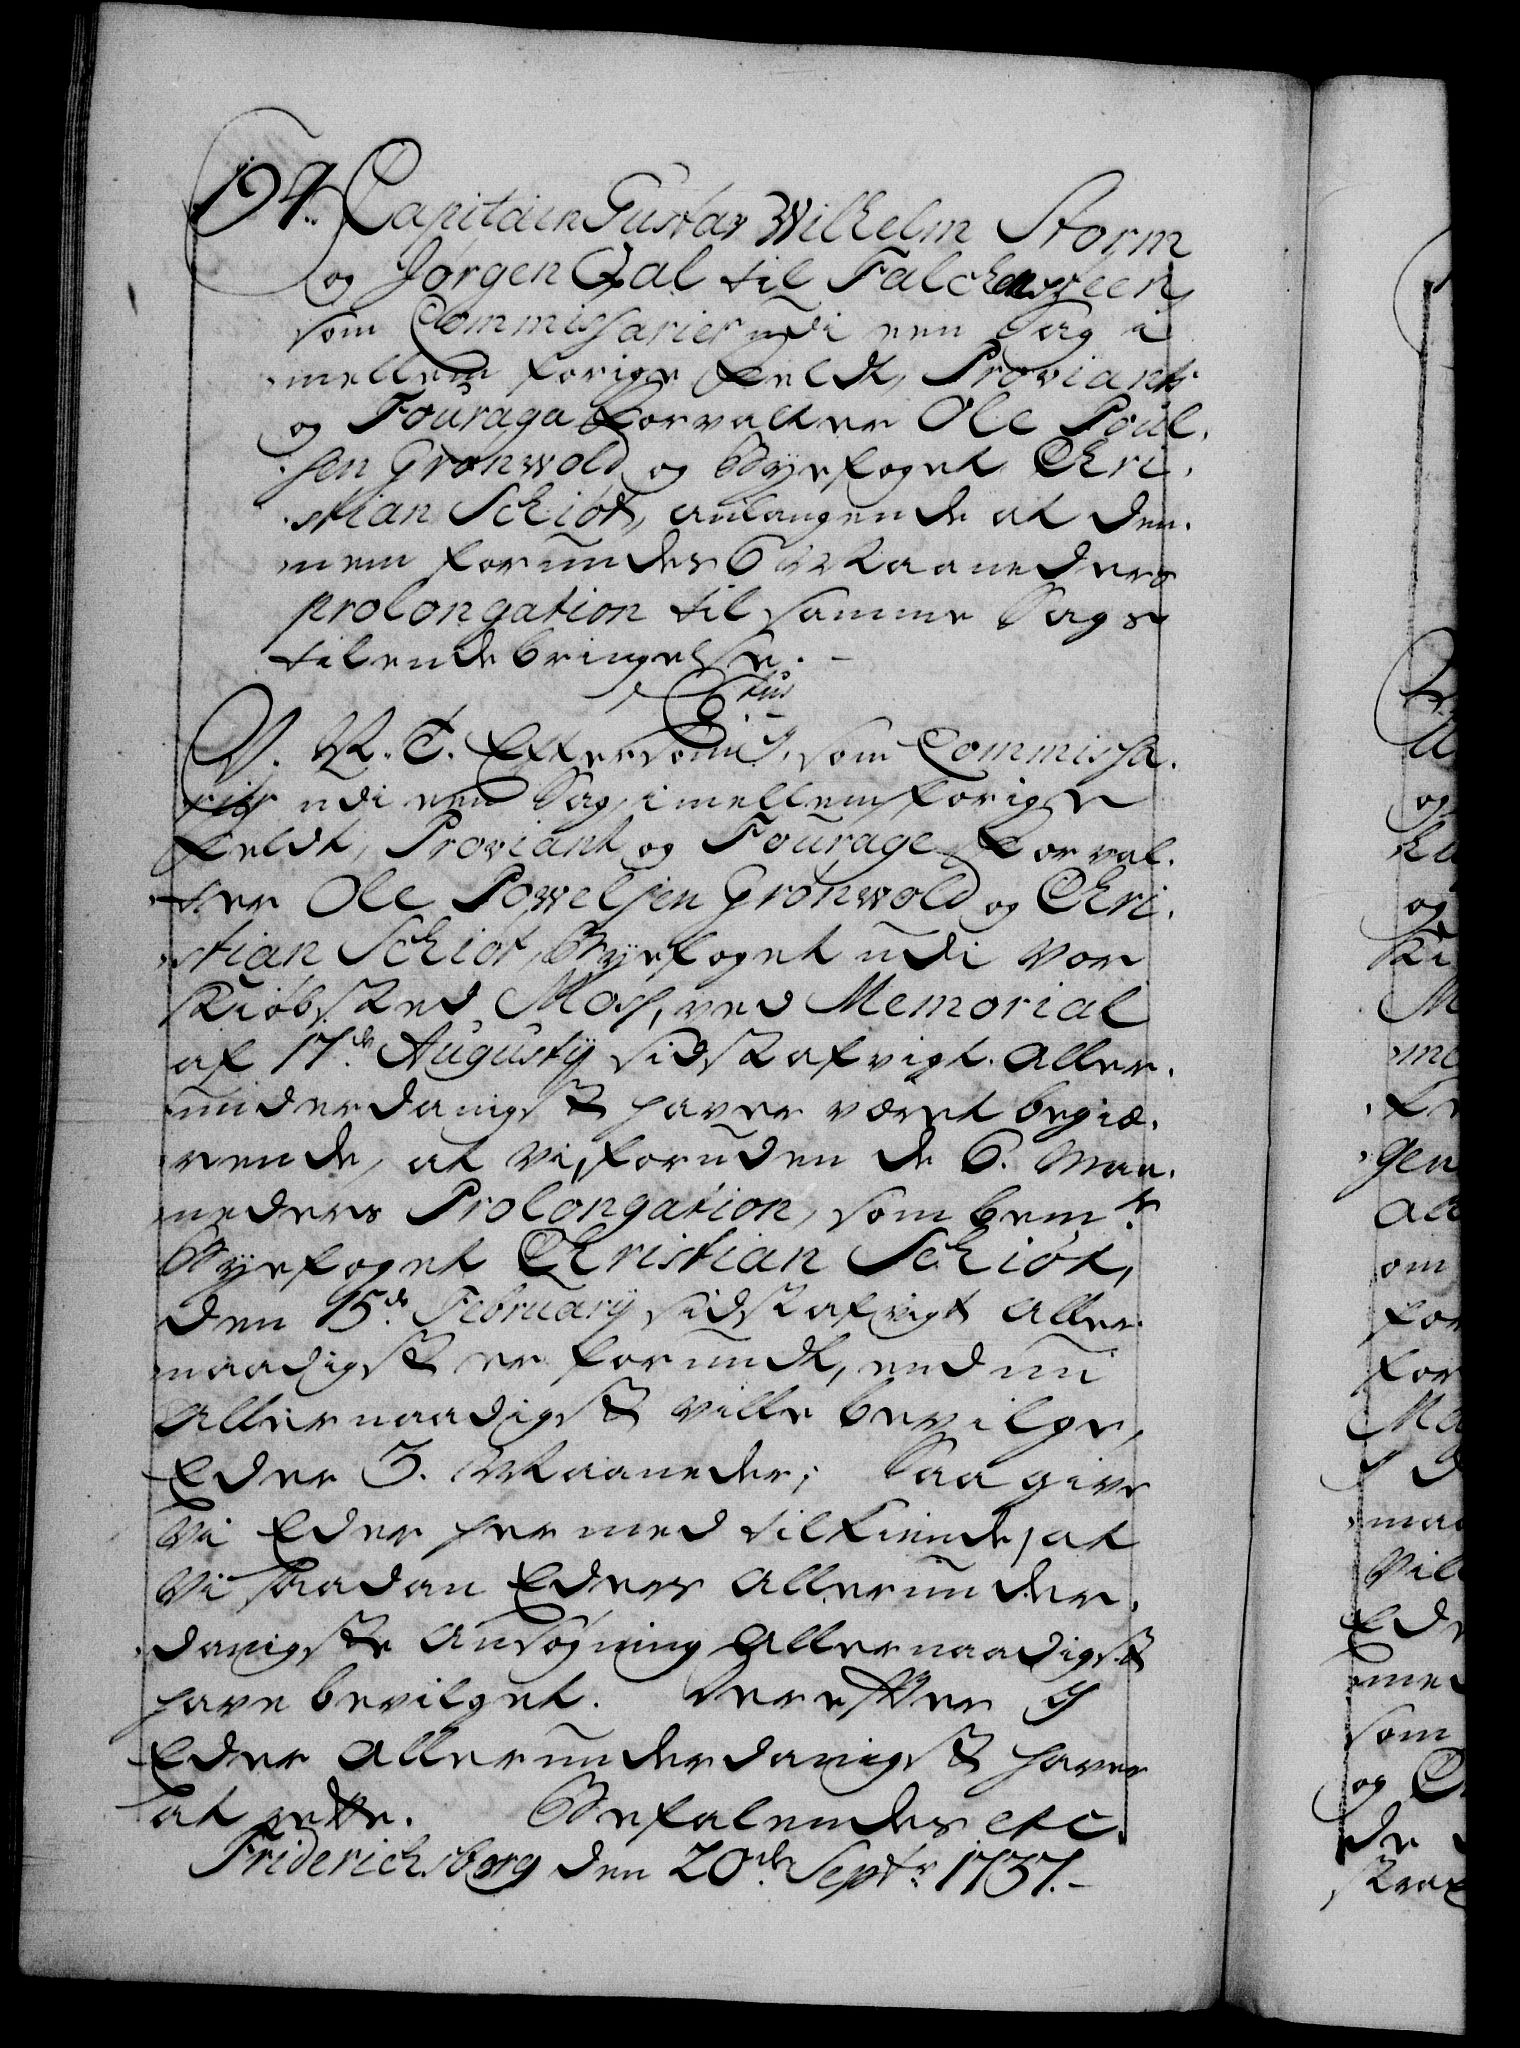 194. Capitain Gustav Wilhelm Storm
og Jørgen Qal til Falchensteen
som Commissarier udi een Sag i
mellem forige Feldt, Proviant
og Fourage Forvalter Ole Poul-
sen Grønwold og Byefoget Chri-
stian Schiøt, anlangende at den-
nem forundes 6 Maaneders
prolongation til samme Sags
tilendebringelse. –
C 6tus
V. R. T. Eftersom I, som Commissa-
rier udi een Sag, imellem forige
Feldt, Proviant og Fourage Forval-
ter Ole Powelsen Grønwold og Chri-
stian Schiøt, Byefoget udi vor
Kiøbsted Moss, ved Memorial
af 17de Augustij sidst afvigt aller-
underdanigst haver været begiæ-
rende, at vi, foruden de 6. Maa-
neders Prolongation, som bemte
Byefoget Christian Schiøt,
den 15de Februarij sidst afvigt aller-
naadigst er forundt, end nu
allernaadigst ville bevilge,
Eder 3. Maaneder; Saa give
Vi Eder hermed tilkiende, at
Vi saadan Eders allerunder-
danigste ansøgning allernaadigst
have bevilget. Derefter I
Eder allerunderdanigst haver
at rette. Befalendes etc.
Friderichsberg den 20de Septr. 1737. –